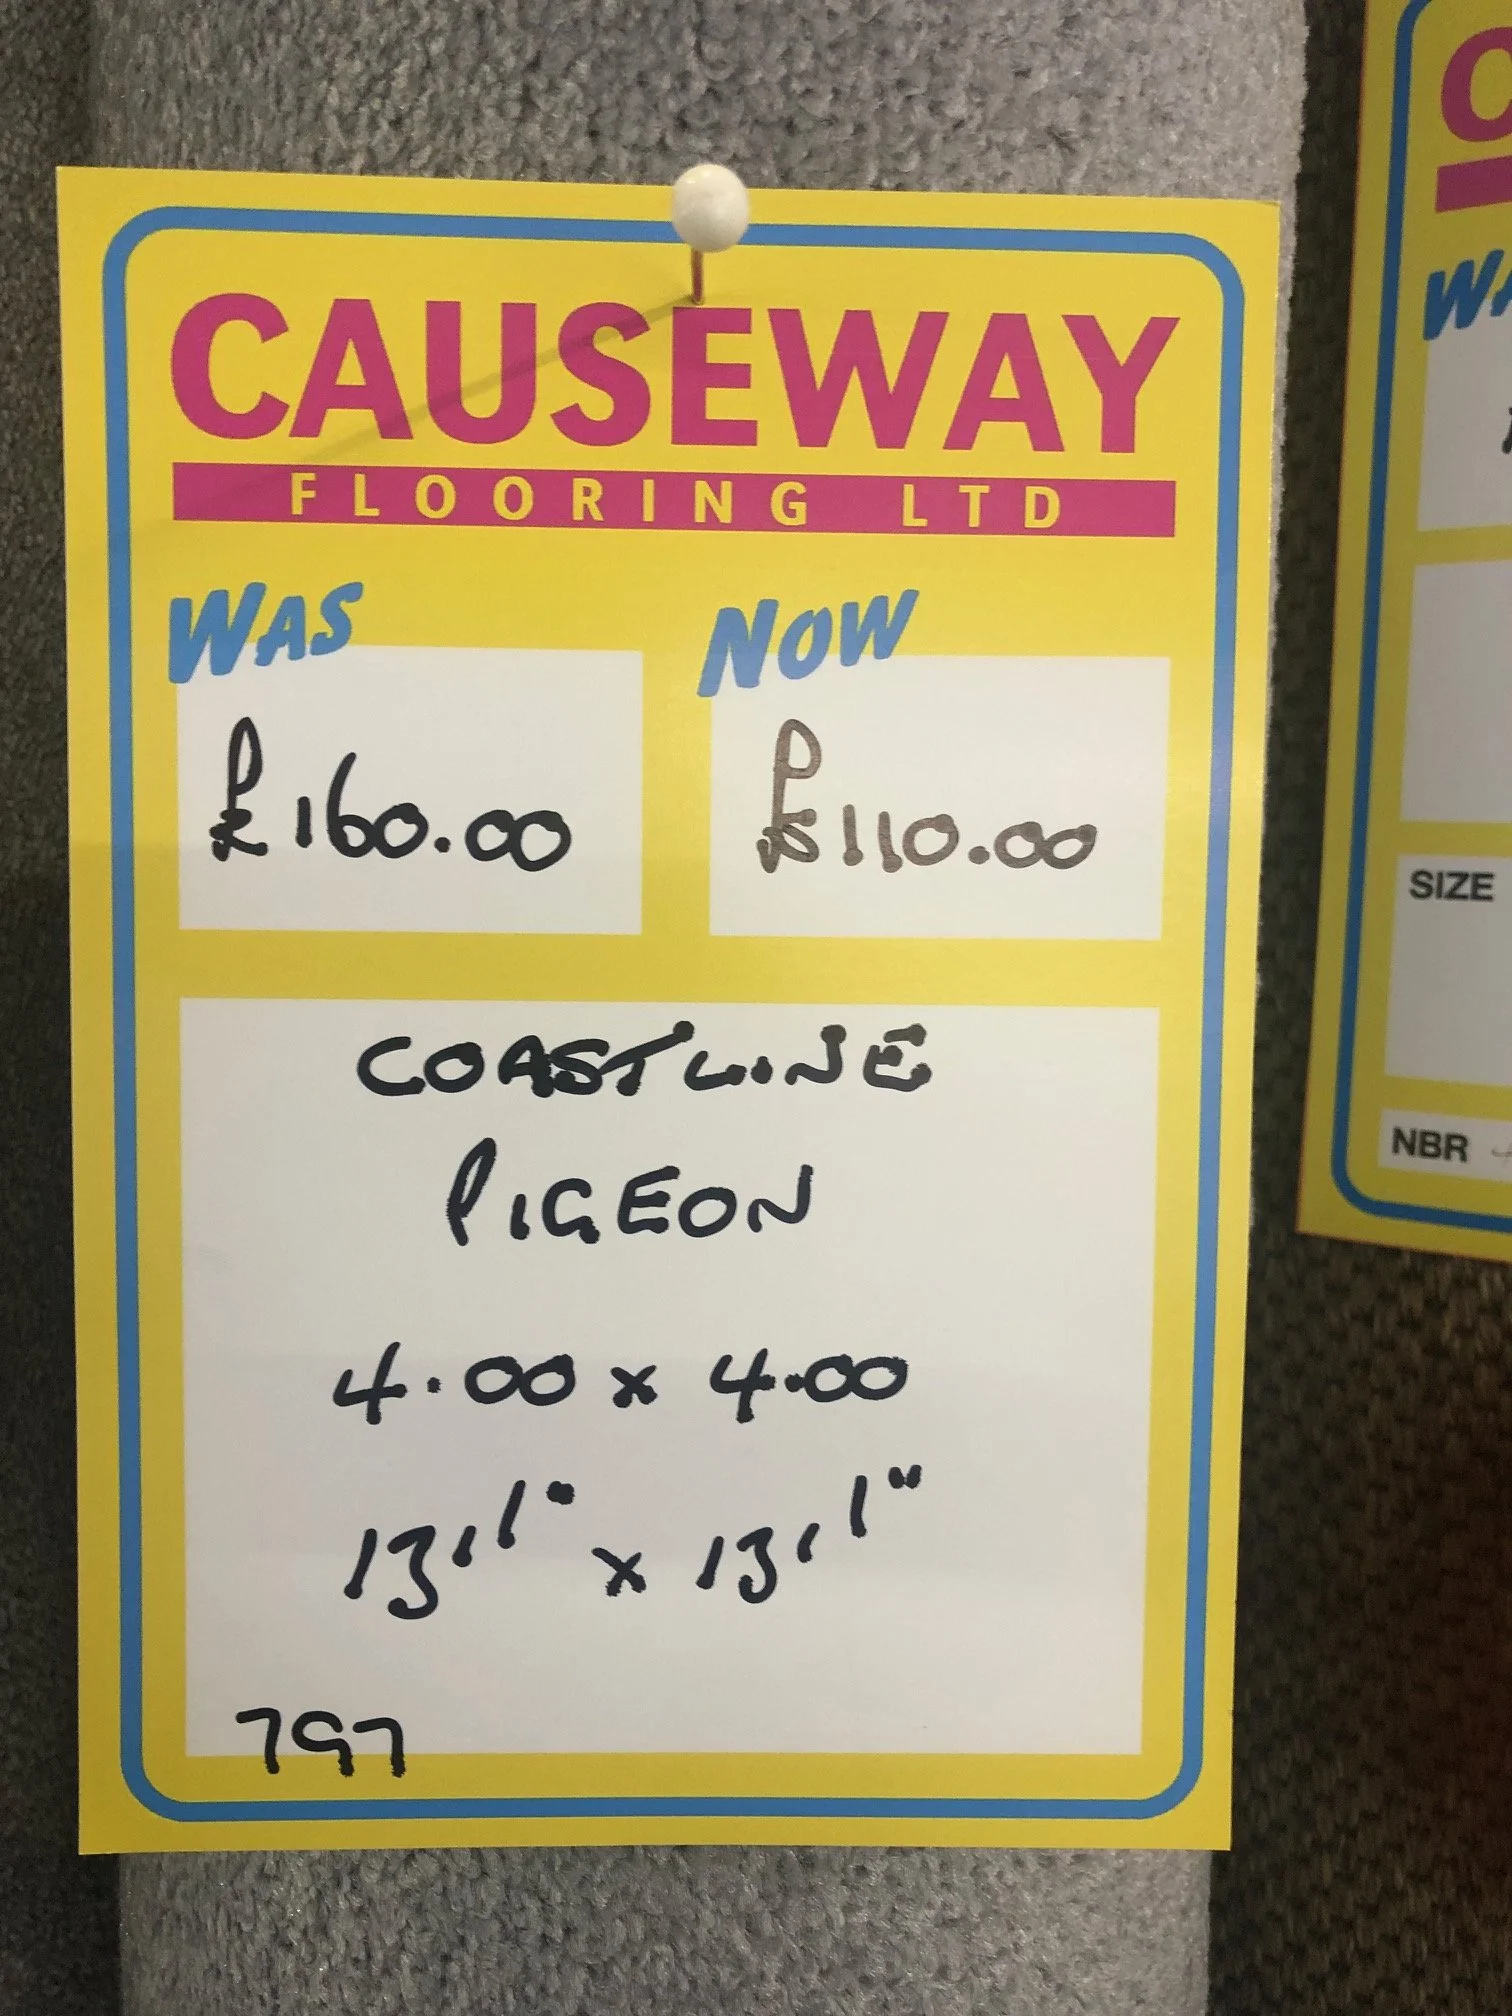 CAUSEWAY
FLOORING LTD
WAS
NOW
£160.00
£110.00
COASTLINE
PIGEON
4.00 x 4.00
13'1" x 13'1"
797
SIZE
NBR